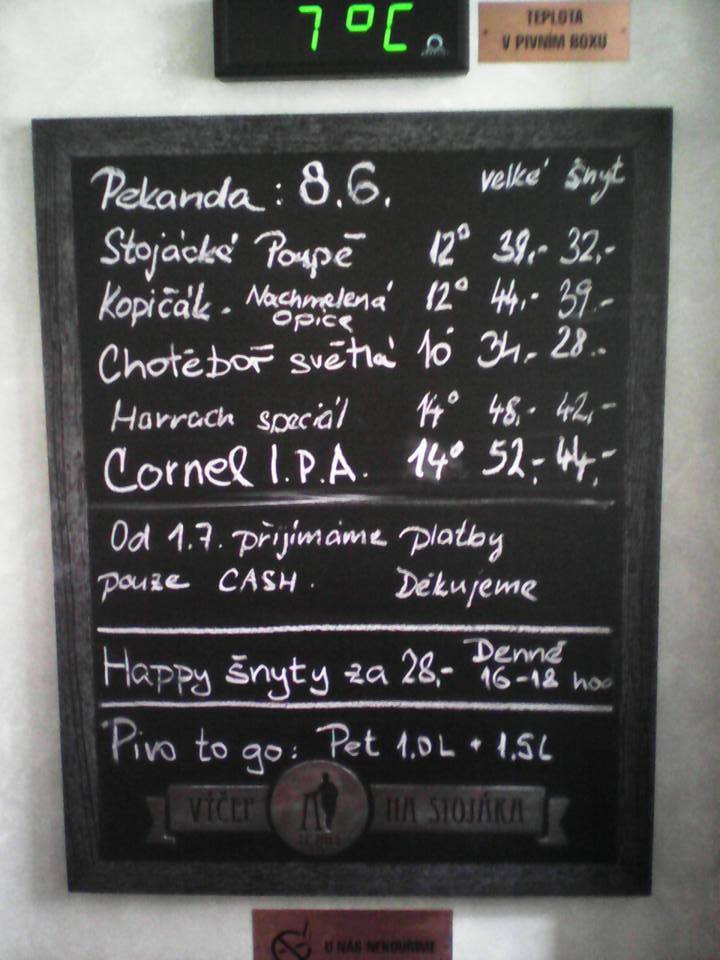 7°C
TEPLOTA
V PIVNÍM BOXU
Pekanda: 8.6. velké šnyt
Stojácké Poupě 12° 39,- 32,-
Kopičák - Nachmelená Opice 12° 44,- 39,-
Chotěboř světlá 10° 34,- 28,-
Harrach speciál 14° 48,- 42,-
Cornel I.P.A. 14° 52,- 44,-
Od 1.7. přijímáme platby
pouze CASH. Děkujeme
Happy šnyty za 28,- Denně 16-18 hod
Pivo to go: Pet 1.0L + 1.5L
VÝČEP NA STOJÁKA
U NÁS NEKOUŘÍME